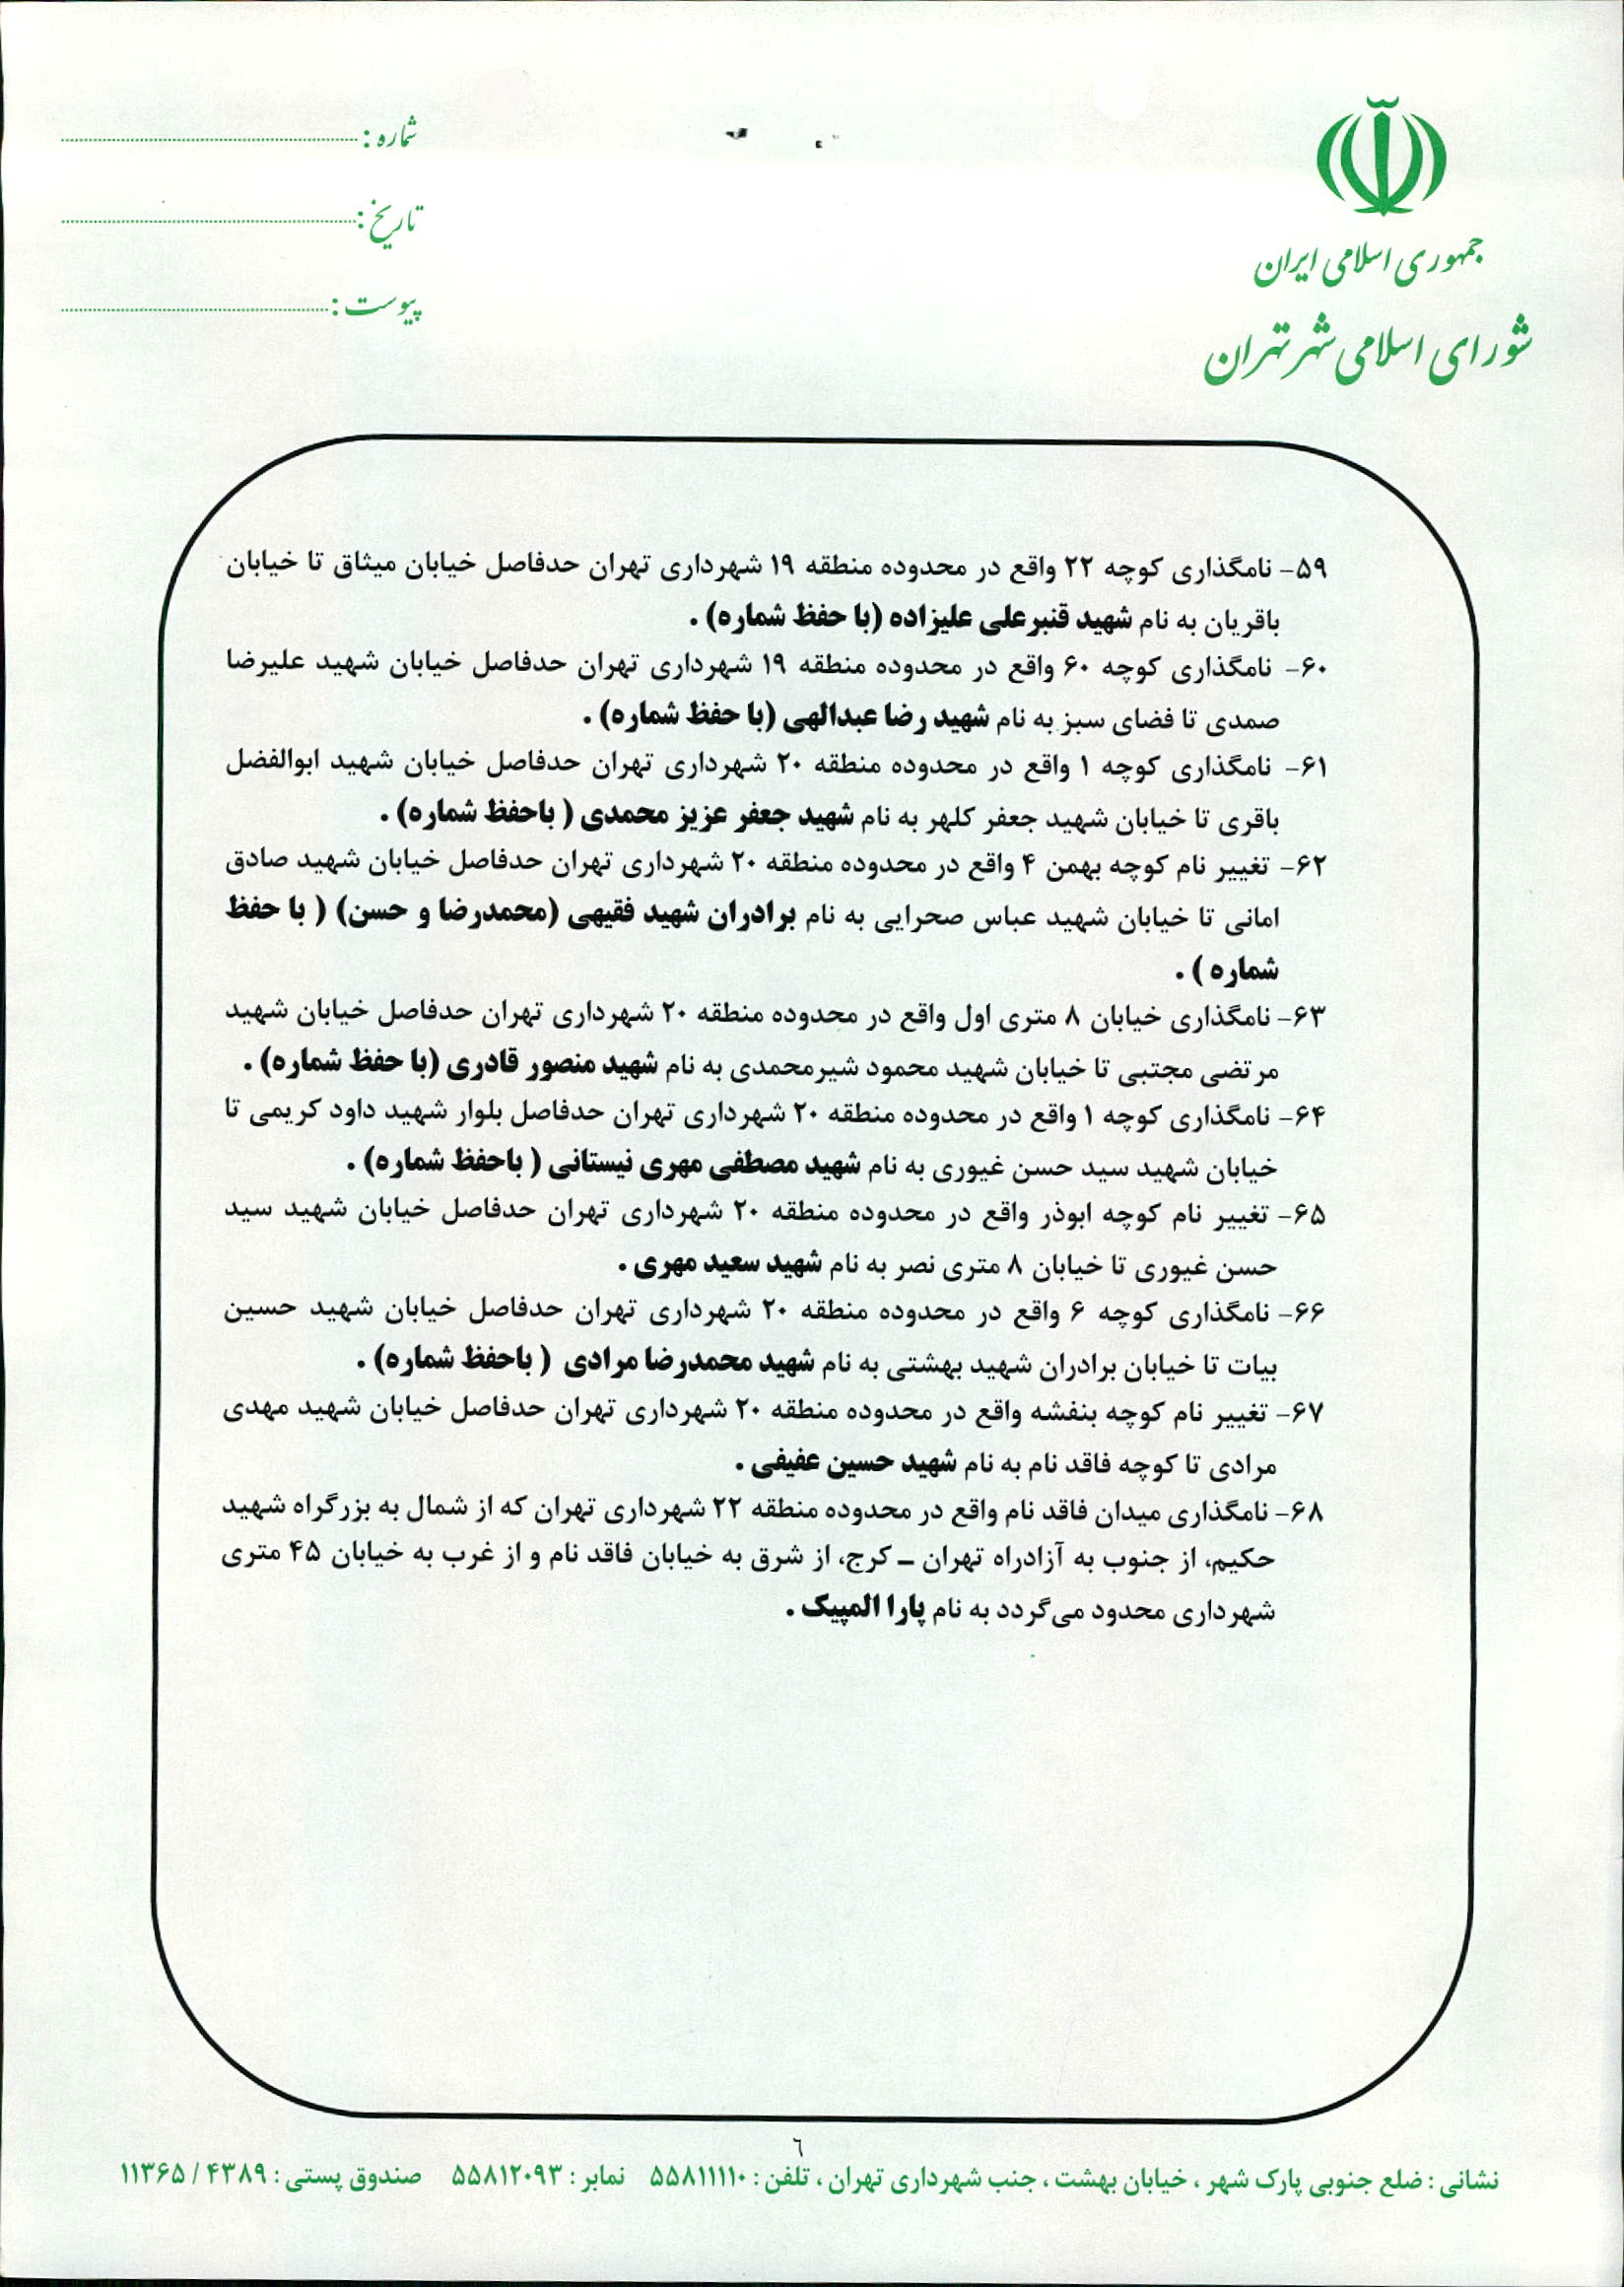 جمهوری اسلامی ایران
شورای اسلامی شهر تهران
شماره :
تاریخ :
پیوست :
۵۹- نامگذاری کوچه ۲۲ واقع در محدوده منطقه ۱۹ شهرداری تهران حدفاصل خیابان میثاق تا خیابان
باقریان به نام شهید قنبرعلی علیزاده (با حفظ شماره) .
۶۰- نامگذاری کوچه ۶۰ واقع در محدوده منطقه ۱۹ شهرداری تهران حدفاصل خیابان شهید علیرضا
صمدی تا فضای سبز به نام شهید رضا عبدالهی (با حفظ شماره) .
۶۱- نامگذاری کوچه ۱ واقع در محدوده منطقه ۲۰ شهرداری تهران حدفاصل خیابان شهید ابوالفضل
باقری تا خیابان شهید جعفر کلهر به نام شهید جعفر عزیز محمدی ( باحفظ شماره) .
۶۲- تغییر نام کوچه بهمن ۴ واقع در محدوده منطقه ۲۰ شهرداری تهران حدفاصل خیابان شهید صادق
امانی تا خیابان شهید عباس صحرایی به نام برادران شهید فقیهی (محمدرضا و حسن) ( با حفظ
شماره ) .
۶۳- نامگذاری خیابان ۸ متری اول واقع در محدوده منطقه ۲۰ شهرداری تهران حدفاصل خیابان شهید
مرتضی مجتبی تا خیابان شهید محمود شیرمحمدی به نام شهید منصور قادری (با حفظ شماره) .
۶۴- نامگذاری کوچه ۱ واقع در محدوده منطقه ۲۰ شهرداری تهران حدفاصل بلوار شهید داود کریمی تا
خیابان شهید سید حسن غیوری به نام شهید مصطفی مهری نیستانی ( باحفظ شماره) .
۶۵- تغییر نام کوچه ابوذر واقع در محدوده منطقه ۲۰ شهرداری تهران حدفاصل خیابان شهید سید
حسن غیوری تا خیابان ۸ متری نصر به نام شهید سعید مهری .
۶۶- نامگذاری کوچه ۶ واقع در محدوده منطقه ۲۰ شهرداری تهران حدفاصل خیابان شهید حسین
بیات تا خیابان برادران شهید بهشتی به نام شهید محمدرضا مرادی ( باحفظ شماره) .
۶۷- تغییر نام کوچه بنفشه واقع در محدوده منطقه ۲۰ شهرداری تهران حدفاصل خیابان شهید مهدی
مرادی تا کوچه فاقد نام به نام شهید حسین عفیفی .
۶۸- نامگذاری میدان فاقد نام واقع در محدوده منطقه ۲۲ شهرداری تهران که از شمال به بزرگراه شهید
حکیم، از جنوب به آزادراه تهران – کرج، از شرق به خیابان فاقد نام و از غرب به خیابان ۴۵ متری
شهرداری محدود می‌گردد به نام پارا المپیک .
٦
نشانی : ضلع جنوبی پارک شهر ، خیابان بهشت ، جنب شهرداری تهران ، تلفن : ۵۵۸۱۱۱۱۰ نمابر : ۵۵۸۱۲۰۹۳ صندوق پستی : ۴۳۸۹ / ۱۱۳۶۵